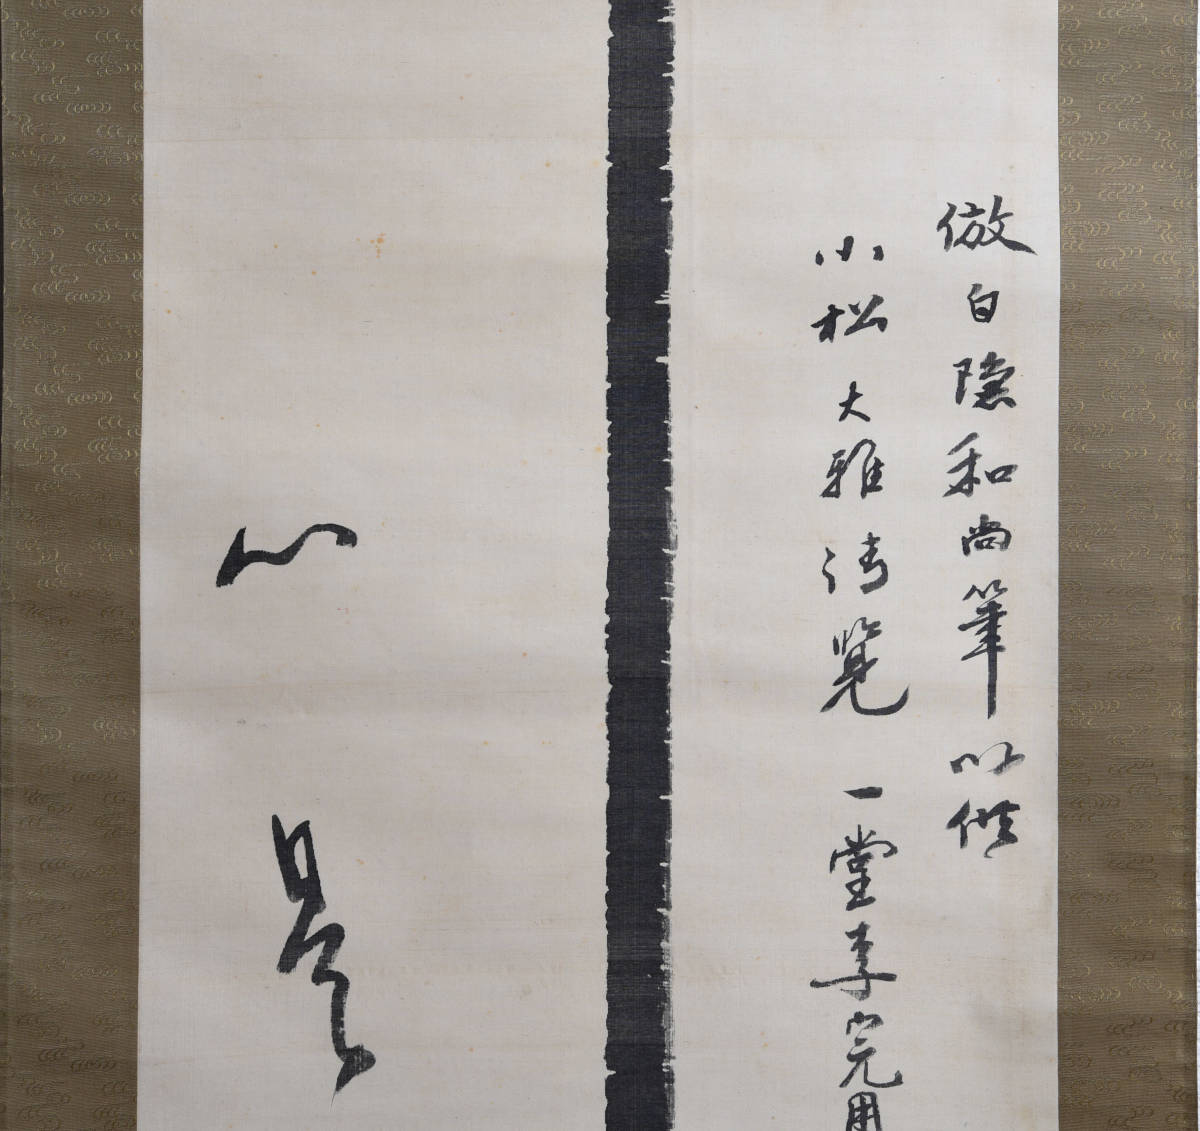 倣白隠和尚筆以供
小松大雅清覧 一堂李完用
心是